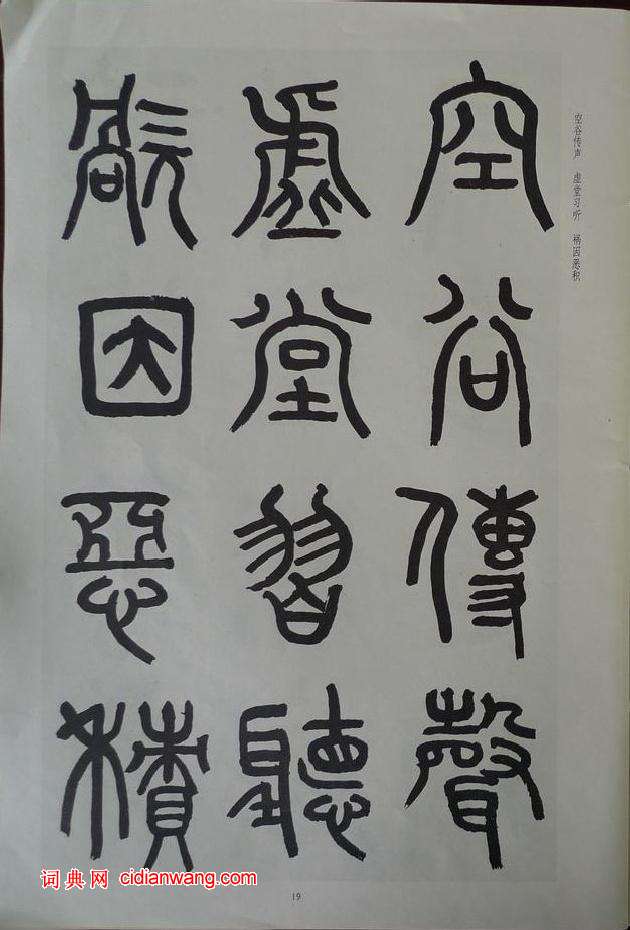 空谷传声 虚堂习听 祸因恶积
空谷傳聲
虛堂習聽
禍因惡積
词典网 cidianwang.com
19